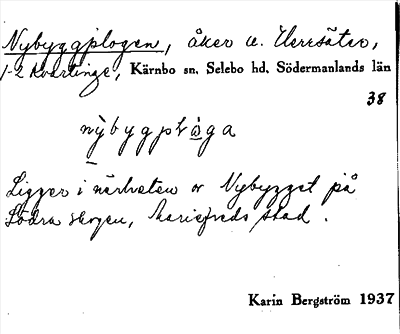 Nybyggplogen, åker u. Herrsäter,
1-2 Kvartinge, Kärnbo sn, Selebo hd, Södermanlands län
38
nỳbygplò̲ga
Ligger i närheten av Nybygget på
Södra skogen, Mariefreds stad.
Karin Bergström 1937